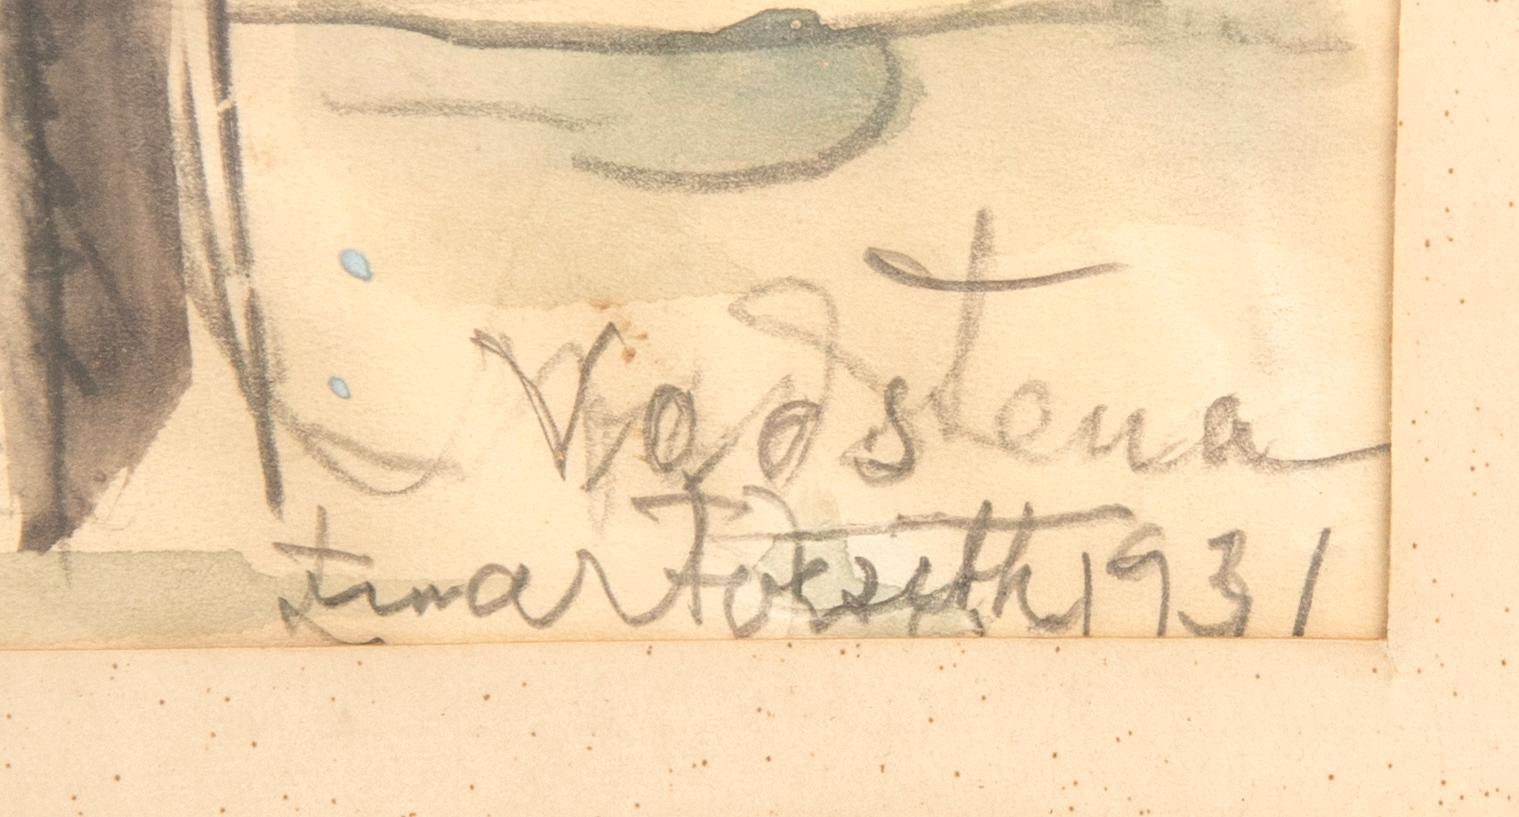 Vadstena
Einar Forseth 1931